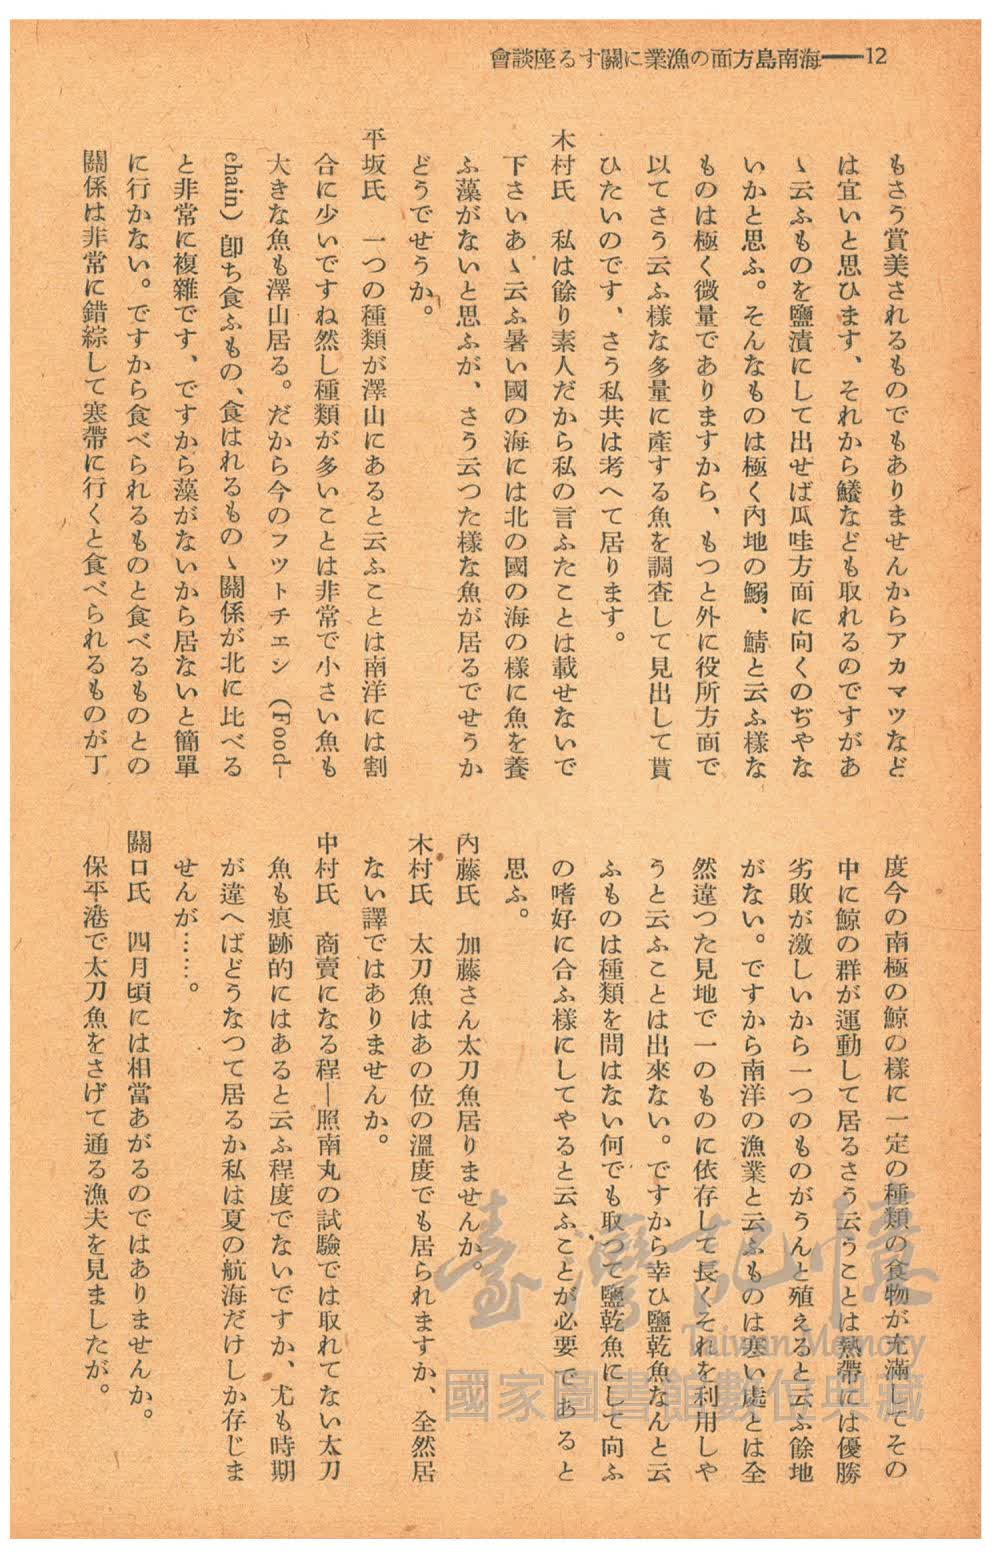 12——海南島方面の漁業に關する座談會
もさう賞美されるものでもありませんからアカマツなど
は宜いと思ひます、それから鱶なども取れるのですがあ
ゝ云ふものを鹽漬にして出せば瓜哇方面に向くのぢやな
いかと思ふ。そんなものは極く內地の鰯、鯖と云ふ樣な
ものは極く微量でありますから、もつと外に役所方面で
以てさう云ふ樣な多量に産する魚を調査して見出して貰
ひたいのです、さう私共は考へて居ります。
木村氏　私は餘り素人だから私の言ふたことは載せないで
下さいあゝ云ふ暑い國の海には北の國の海の樣に魚を養
ふ藻がないと思ふが、さう云つた樣な魚が居るでせうか
どうでせうか。
平坂氏　一つの種類が澤山にあると云ふことは南洋には割
合に少いですね然し種類が多いことは非常で小さい魚も
大きな魚も澤山居る。だから今のフツトチエシ（Food-
ehain）卽ち食ふもの、食はれるものゝ關係が北に比べる
と非常に複雜です、ですから藻がないから居ないと簡單
に行かない。ですから食べられるものと食べるものとの
關係は非常に錯綜して寒帶に行くと食べられるものが丁
度今の南極の鯨の樣に一定の種類の食物が充滿してその
中に鯨の群が運動して居るさう云うことは熱帶には優勝
劣敗が激しいから一つのものがうんと殖えると云ふ餘地
がない。ですから南洋の漁業と云ふものは寒い處とは全
然違つた見地で一のものに依存して長くそれを利用しや
うと云ふことは出來ない。ですから幸ひ鹽乾魚なんと云
ふものは種類を問はない何でも取つて鹽乾魚にして向ふ
の嗜好に合ふ樣にしてやると云ふことが必要であると
思ふ。
內藤氏　加藤さん太刀魚居りませんか。
木村氏　太刀魚はあの位の溫度でも居られますか、全然居
ない譯ではありませんか。
中村氏　商賣になる程—照南丸の試驗では取れてない太刀
魚も痕跡的にはあると云ふ程度でないですか、尤も時期
が違へばどうなつて居るか私は夏の航海だけしか存じま
せんが……。
關口氏　四月頃には相當あがるのではありませんか。
保平港で太刀魚をさげて通る漁夫を見ましたが。
臺灣記憶
Taiwan Memory
國家圖書館數位典藏